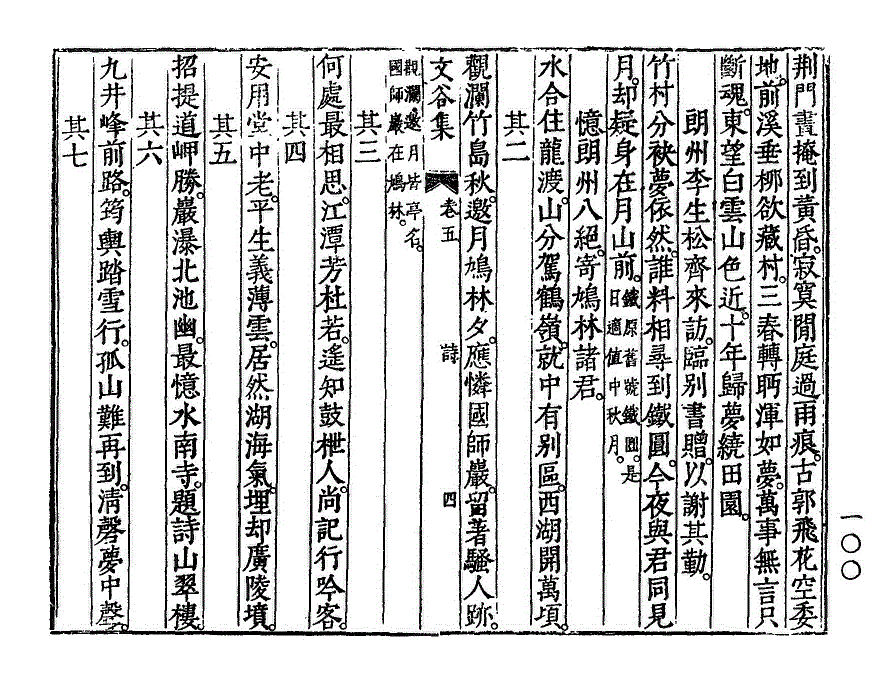 荆門晝掩到黃昏。寂寞閒庭過雨痕。古郭飛花空委
地。前溪垂柳欲藏村。三春轉眄渾如夢。萬事無言只
斷魂。東望白雲山色近。十年歸夢繞田園。
朗州李生松齊來訪。臨別書贈。以謝其勤。
竹村分袂夢依然。誰料相尋到鐵圓。今夜與君同見
月。却疑身在月山前。鐵原舊號鐵圓。是
日適值中秋月。
憶朗州八絕。寄鳩林諸君。
水合住龍渡。山分駕鶴嶺。就中有別區。西湖開萬頃。
其二
觀瀾竹島秋。邀月鳩林夕。應憐國師巖。留著騷人跡。
文谷集 卷五 詩 四
觀瀾邀月皆亭名。
國師巖在鳩林。
其三
何處最相思。江潭芳杜若。遙知鼓枻人。尚記行吟客。
其四
安用堂中老。平生義薄雲。居然湖海氣。埋却廣陵墳。
其五
招提道岬勝。巖瀑北池幽。最憶水南寺。題詩山翠樓。
其六
九井峰前路。筍輿踏雪行。孤山難再到。淸磬夢中聲。
其七
一〇〇